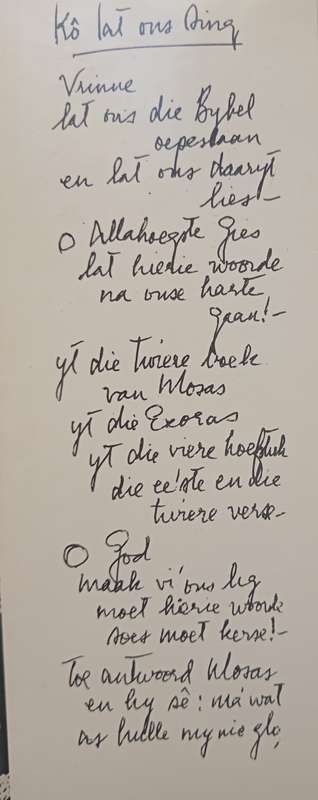 Kô lat ons sing
Vrinne
lat ons die Bybel
oepeslaan
en lat ons daaryt
lies–
O Allahoegste Gies
lat hierie woorde
na onse harte
gaan!–
yt die twiere boek
van Mosas
yt die Exoras
yt die viere hoefstuk
die ee'ste en die
twiere verse–
O God
maak vi' ons lig
moet hierie woorde
soes moet kerse!–
Toe antwoord Mosas
en hy sê: ma' wat
as hulle my nie glo,